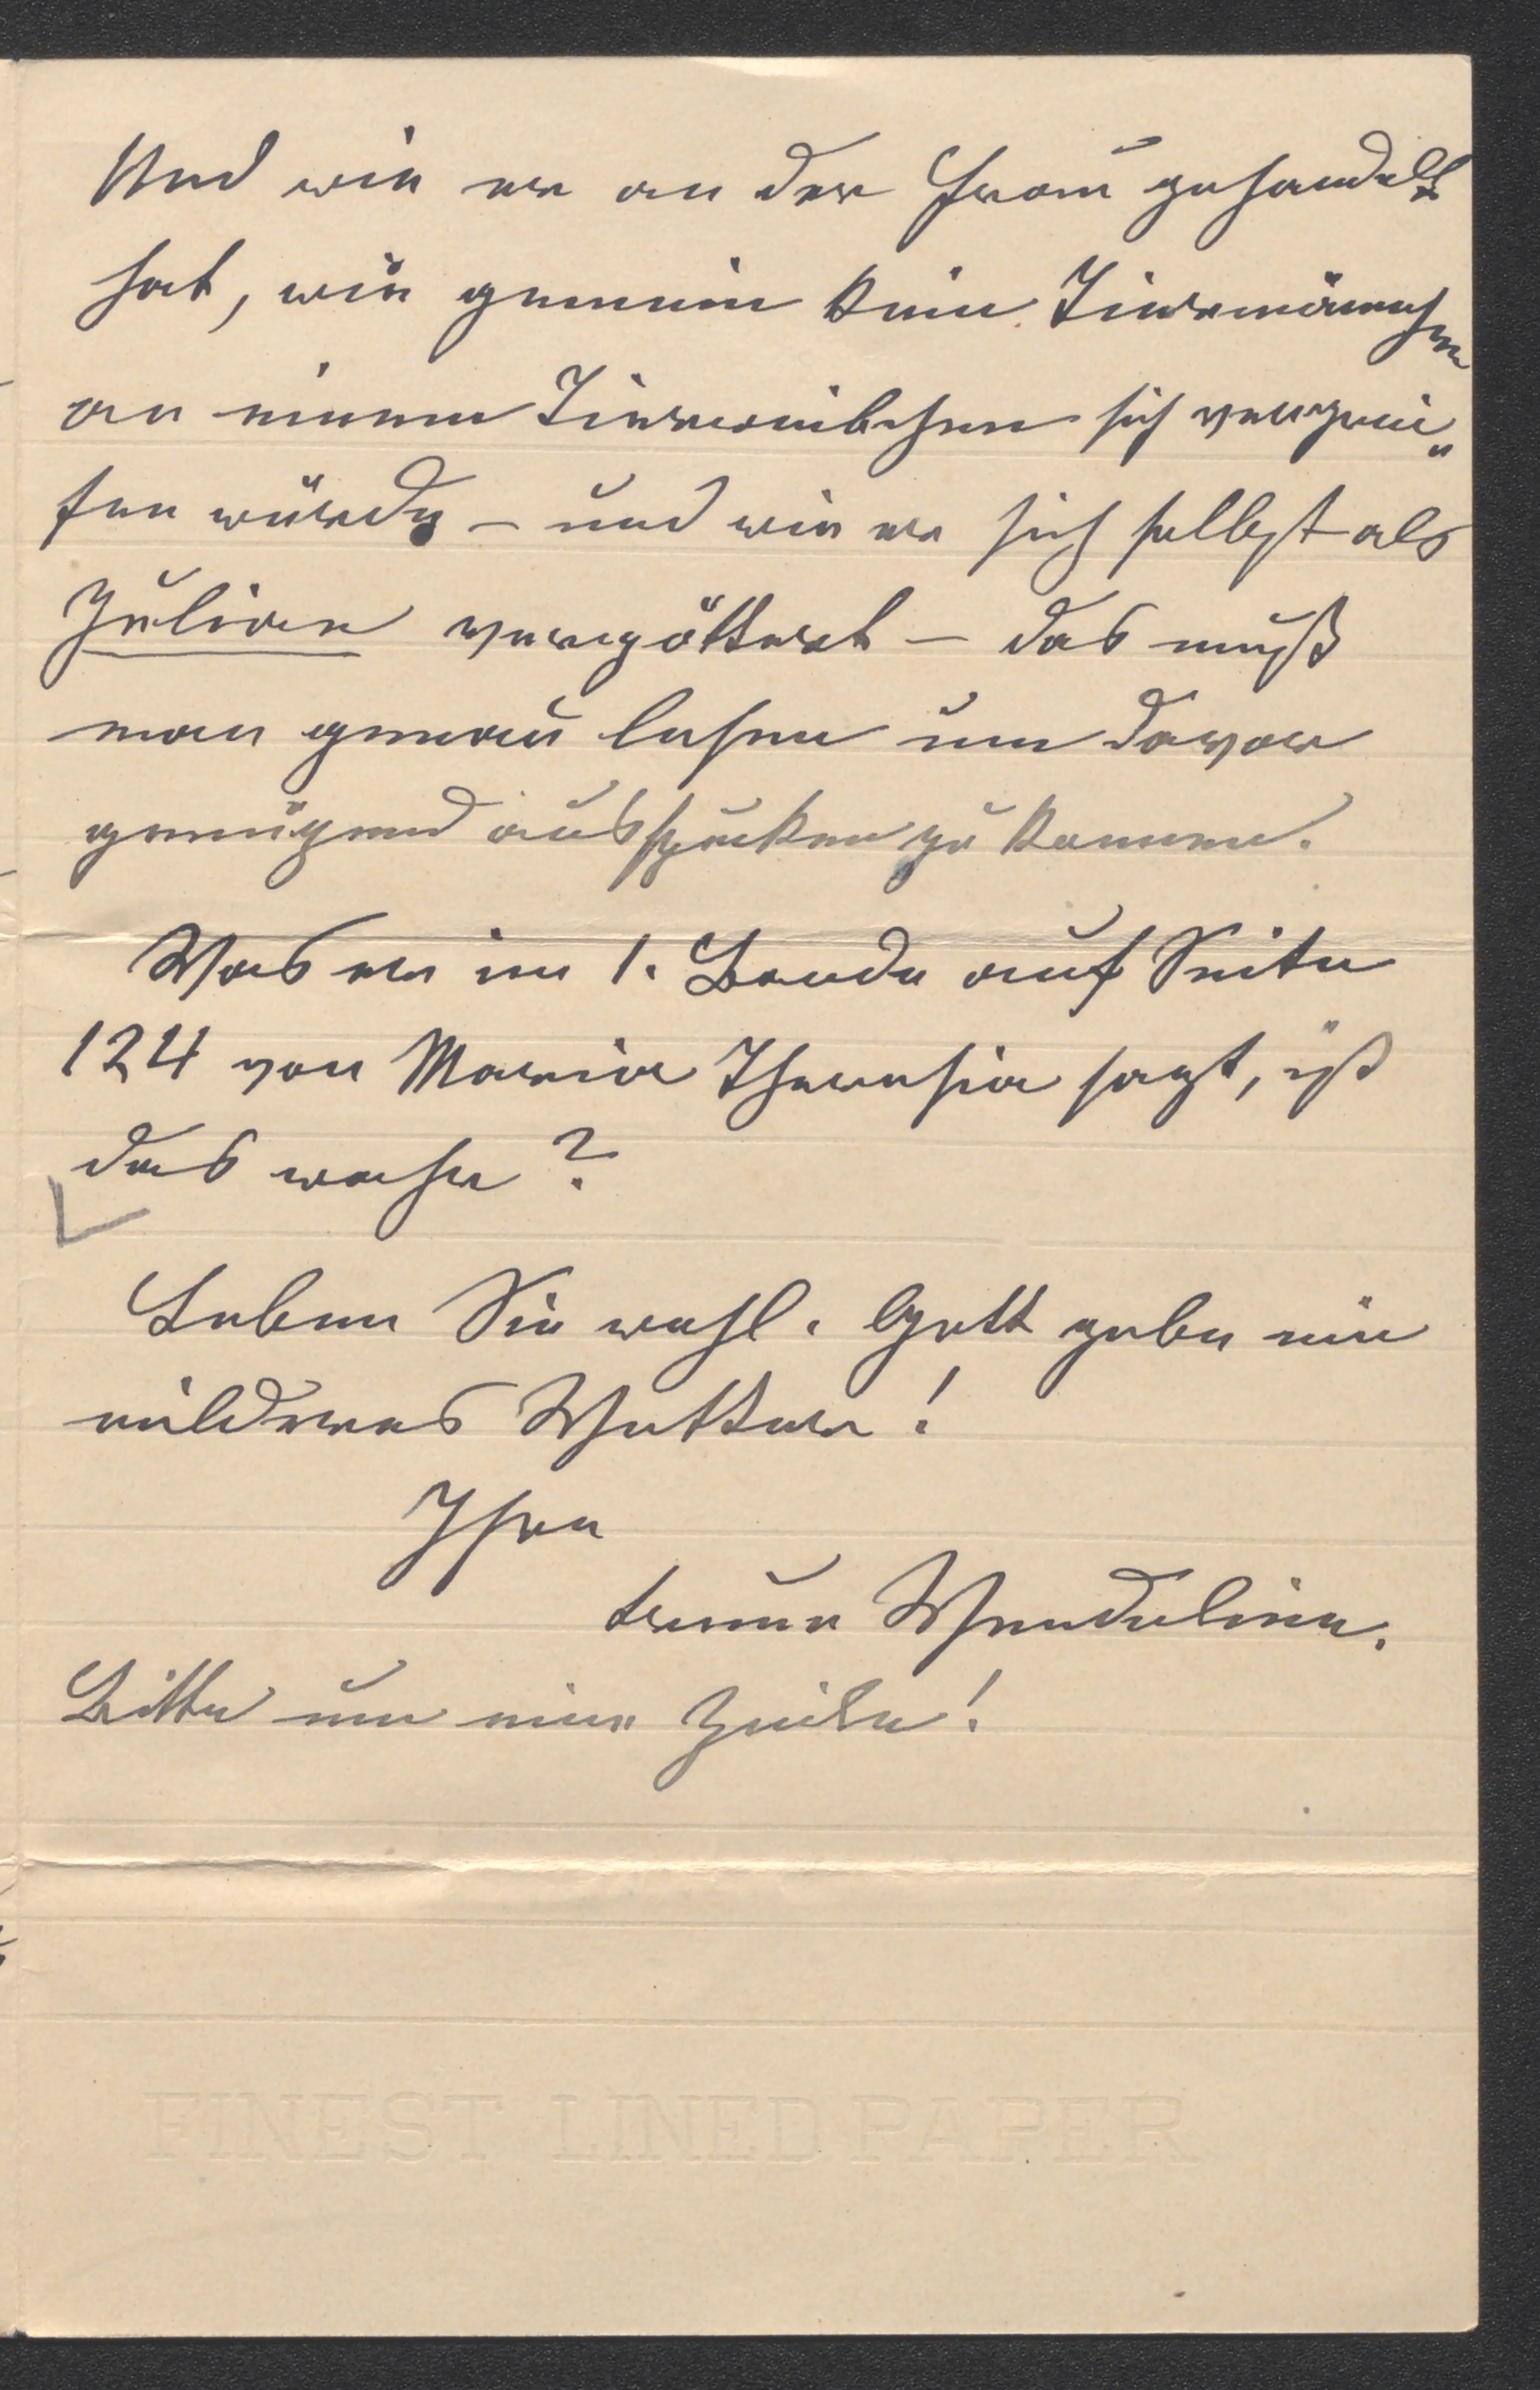 Und wie er an der Frau gehandelt
hat, wie gemein kein Tiermännchen
an einem Tierweibchen sich vergrei„
fen würde – und wie er sich selbst als
Julian vergöttert – das muß
man genau lesen um davor
genügend ausspucken zu können.
Was er im 1. Bande auf Seite
124 von Maria Theresia sagt, ist
das wahr?
Leben Sie wohl. Gott gebe ein
milderes Wetter!
Ihre
treue Wendeline.
Bitte um eine Zeile!
FINEST LINED PAPER